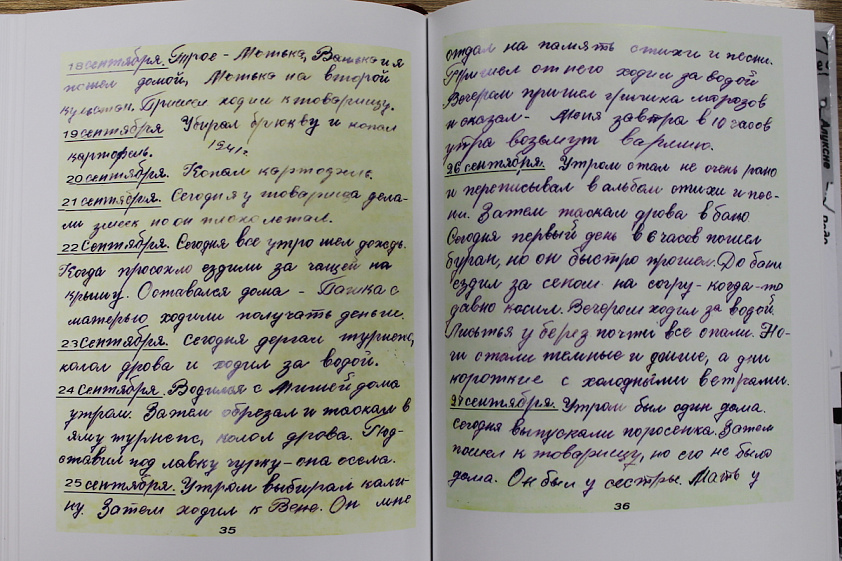 18 сентября. Трое - Мотька, Ванька и я
пошел домой, Мотька на второй
Пришел ходил к товарищу.
19 сентября Убирал брюкву и копал
1941г.
картофель.
20 сентября. Копал картофель.
21 сентября. Сегодня у товарища дела-
ли змеек но он плохо летал.
22 Сентября. Сегодня все утро шел дождь.
Когда просохло ездили за чащей на
крышу. Оставался дома - Пашка с
матерью ходили получать деньги.
23 Сентября. Сегодня дергали турнепс,
колол дрова и ходил за водой.
24 Сентября. Водился с Мишей дома
утром. Затем обрезал и таскал в
яму турнепс, колол дрова. Под-
ставил под лавку чурку - она осела.
25 сентября. Утром выбирал кали-
ну. Затем ходил к Вене. Он мне
35
отдал на память стихи и песни.
Пришел от него ходил за водой
Вечером пришел Гришка Морозов
и сказал - Меня завтра в 10 часов
утра возьмут в армию.
26 сентября. Утром стал не очень рано
и переписывал в альбом стихи и пес-
ни. Затем таскал дрова в баню
Сегодня первый день в 6 часов пошел
буран, но он быстро прошел. До бани
ездил за сеном на согру - когда-то
давно косил. Вечером ходил за водой.
Листья у берез почти все опали. Но-
чи стали темные и долгие, а дни
короткие с холодными ветрами.
27 сентября. Утром был один дома.
сегодня выпускали поросенка. Затем
пошел к товарищу, но его не было
дома. Он был у сестры. Мать у
36
Алуксне